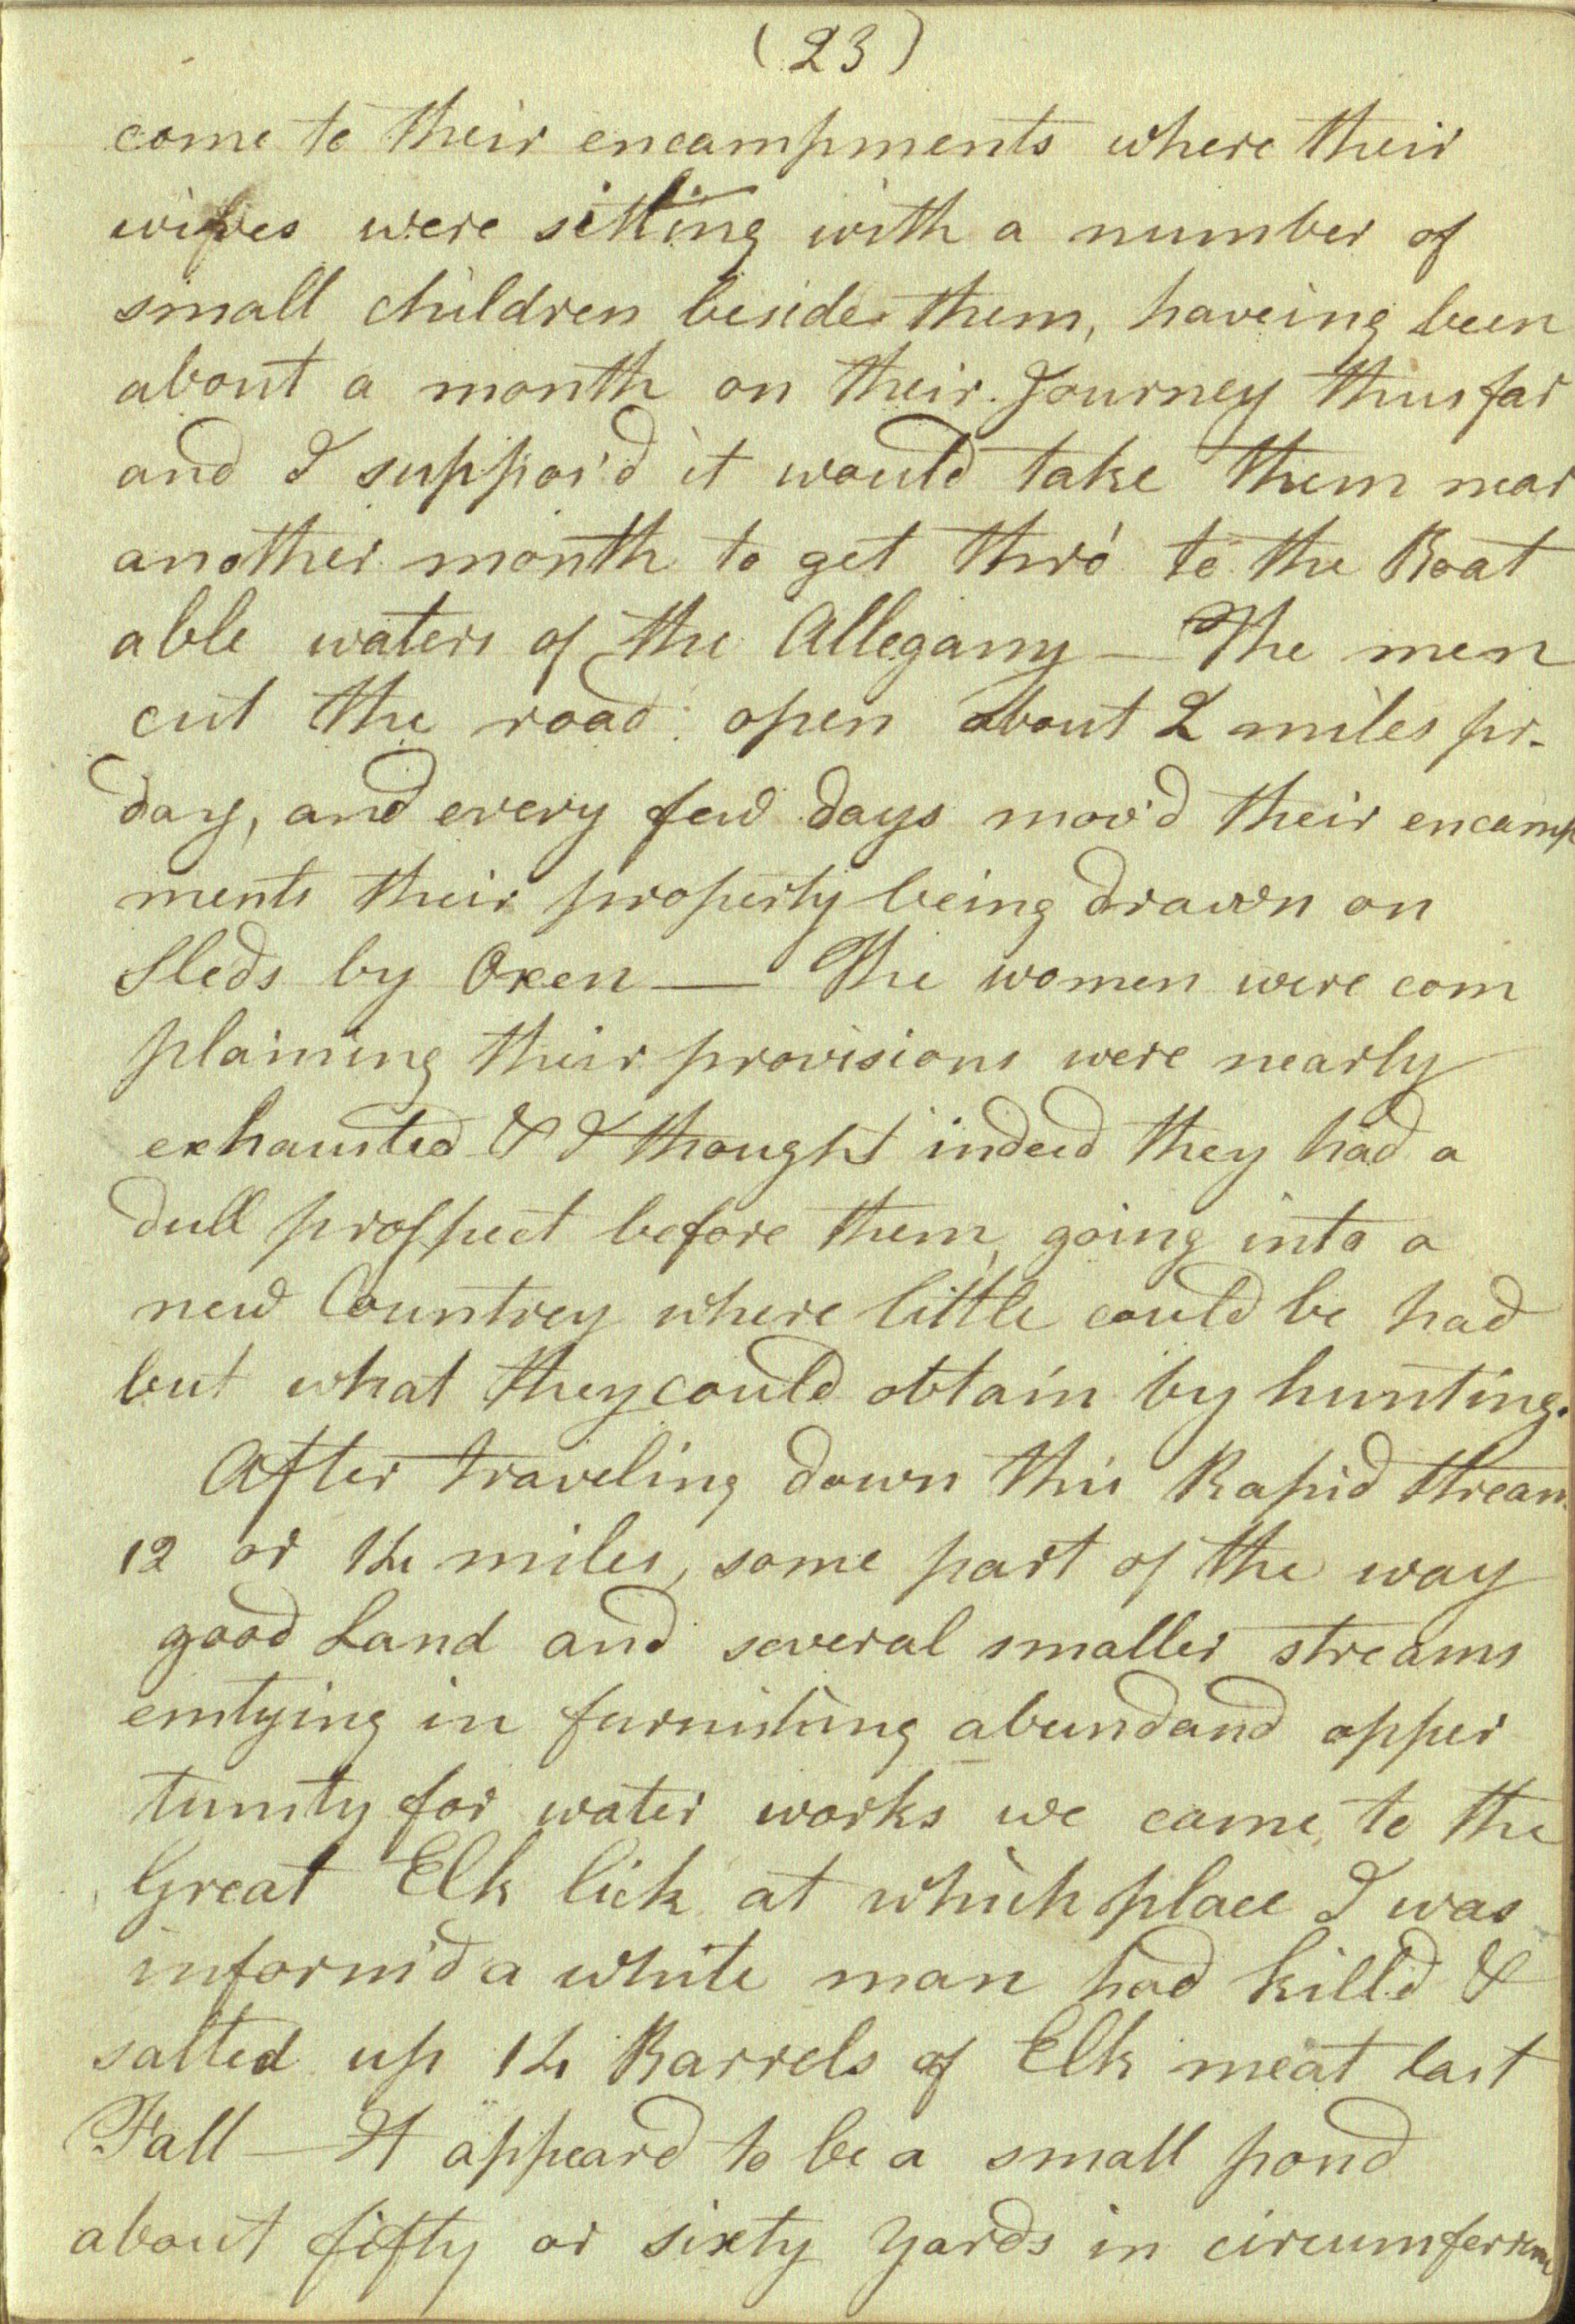 (23)
come to their encampments where their
wifves were sitting with a number of
small children beside them, haveing been
about a month on their Journey thus far
and I suppos'd it would take them near
another month to get thro' to the Boat
able waters of the Allegany — The men
cut the road open about 2 miles pr.
day, and every few days mov'd their encamp
ments their property being drawn on
Sleds by Oxen — The women were com
plaining their provisions were nearly
exhausted & I thought indeed they had a
dull prospect before them, going into a
new Countrey where little could be had
but what they could obtain by hunting.
After traveling down this Rapid stream
12 or 14 miles, some part of the way
good Land and several smaller streams
emtying in furnishing abundand opper
tunity for water works we came to the
Great Elk lick at which place I was
inform'd a white man had kill'd &
salted up 14 Barrels of Elk meat last
Fall — It appeard to be a small pond
about fifty or sixty yards in circumference